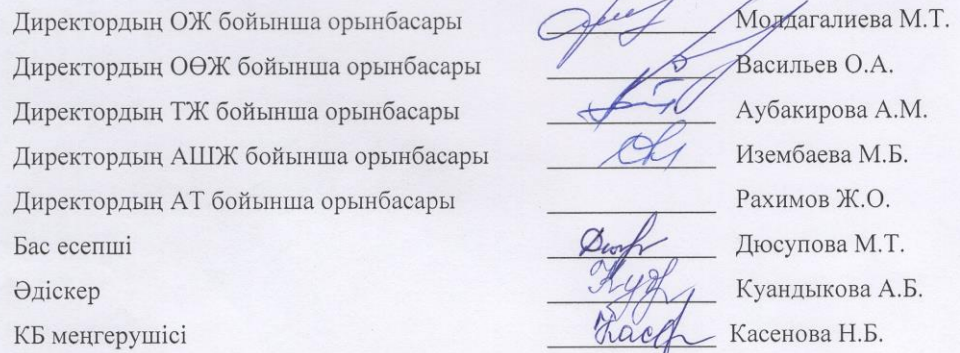 Директордың ОЖ бойынша орынбасары Молдагалиева М.Т.
Директордың ОӨЖ бойынша орынбасары Васильев О.А.
Директордың ТЖ бойынша орынбасары Аубакирова А.М.
Директордың АШЖ бойынша орынбасары Изембаева М.Б.
Директордың АТ бойынша орынбасары Рахимов Ж.О.
Бас есепші Дюсупова М.Т.
Әдіскер Куандыкова А.Б.
КБ меңгерушісі Касенова Н.Б.